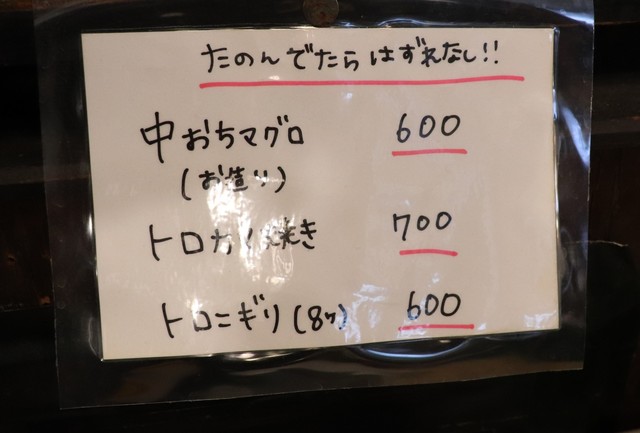 たのんでたらはずれなし!!
中おちマグロ 600
(お造り)
トロカマ焼き 700
トロニギリ(8ヶ) 600